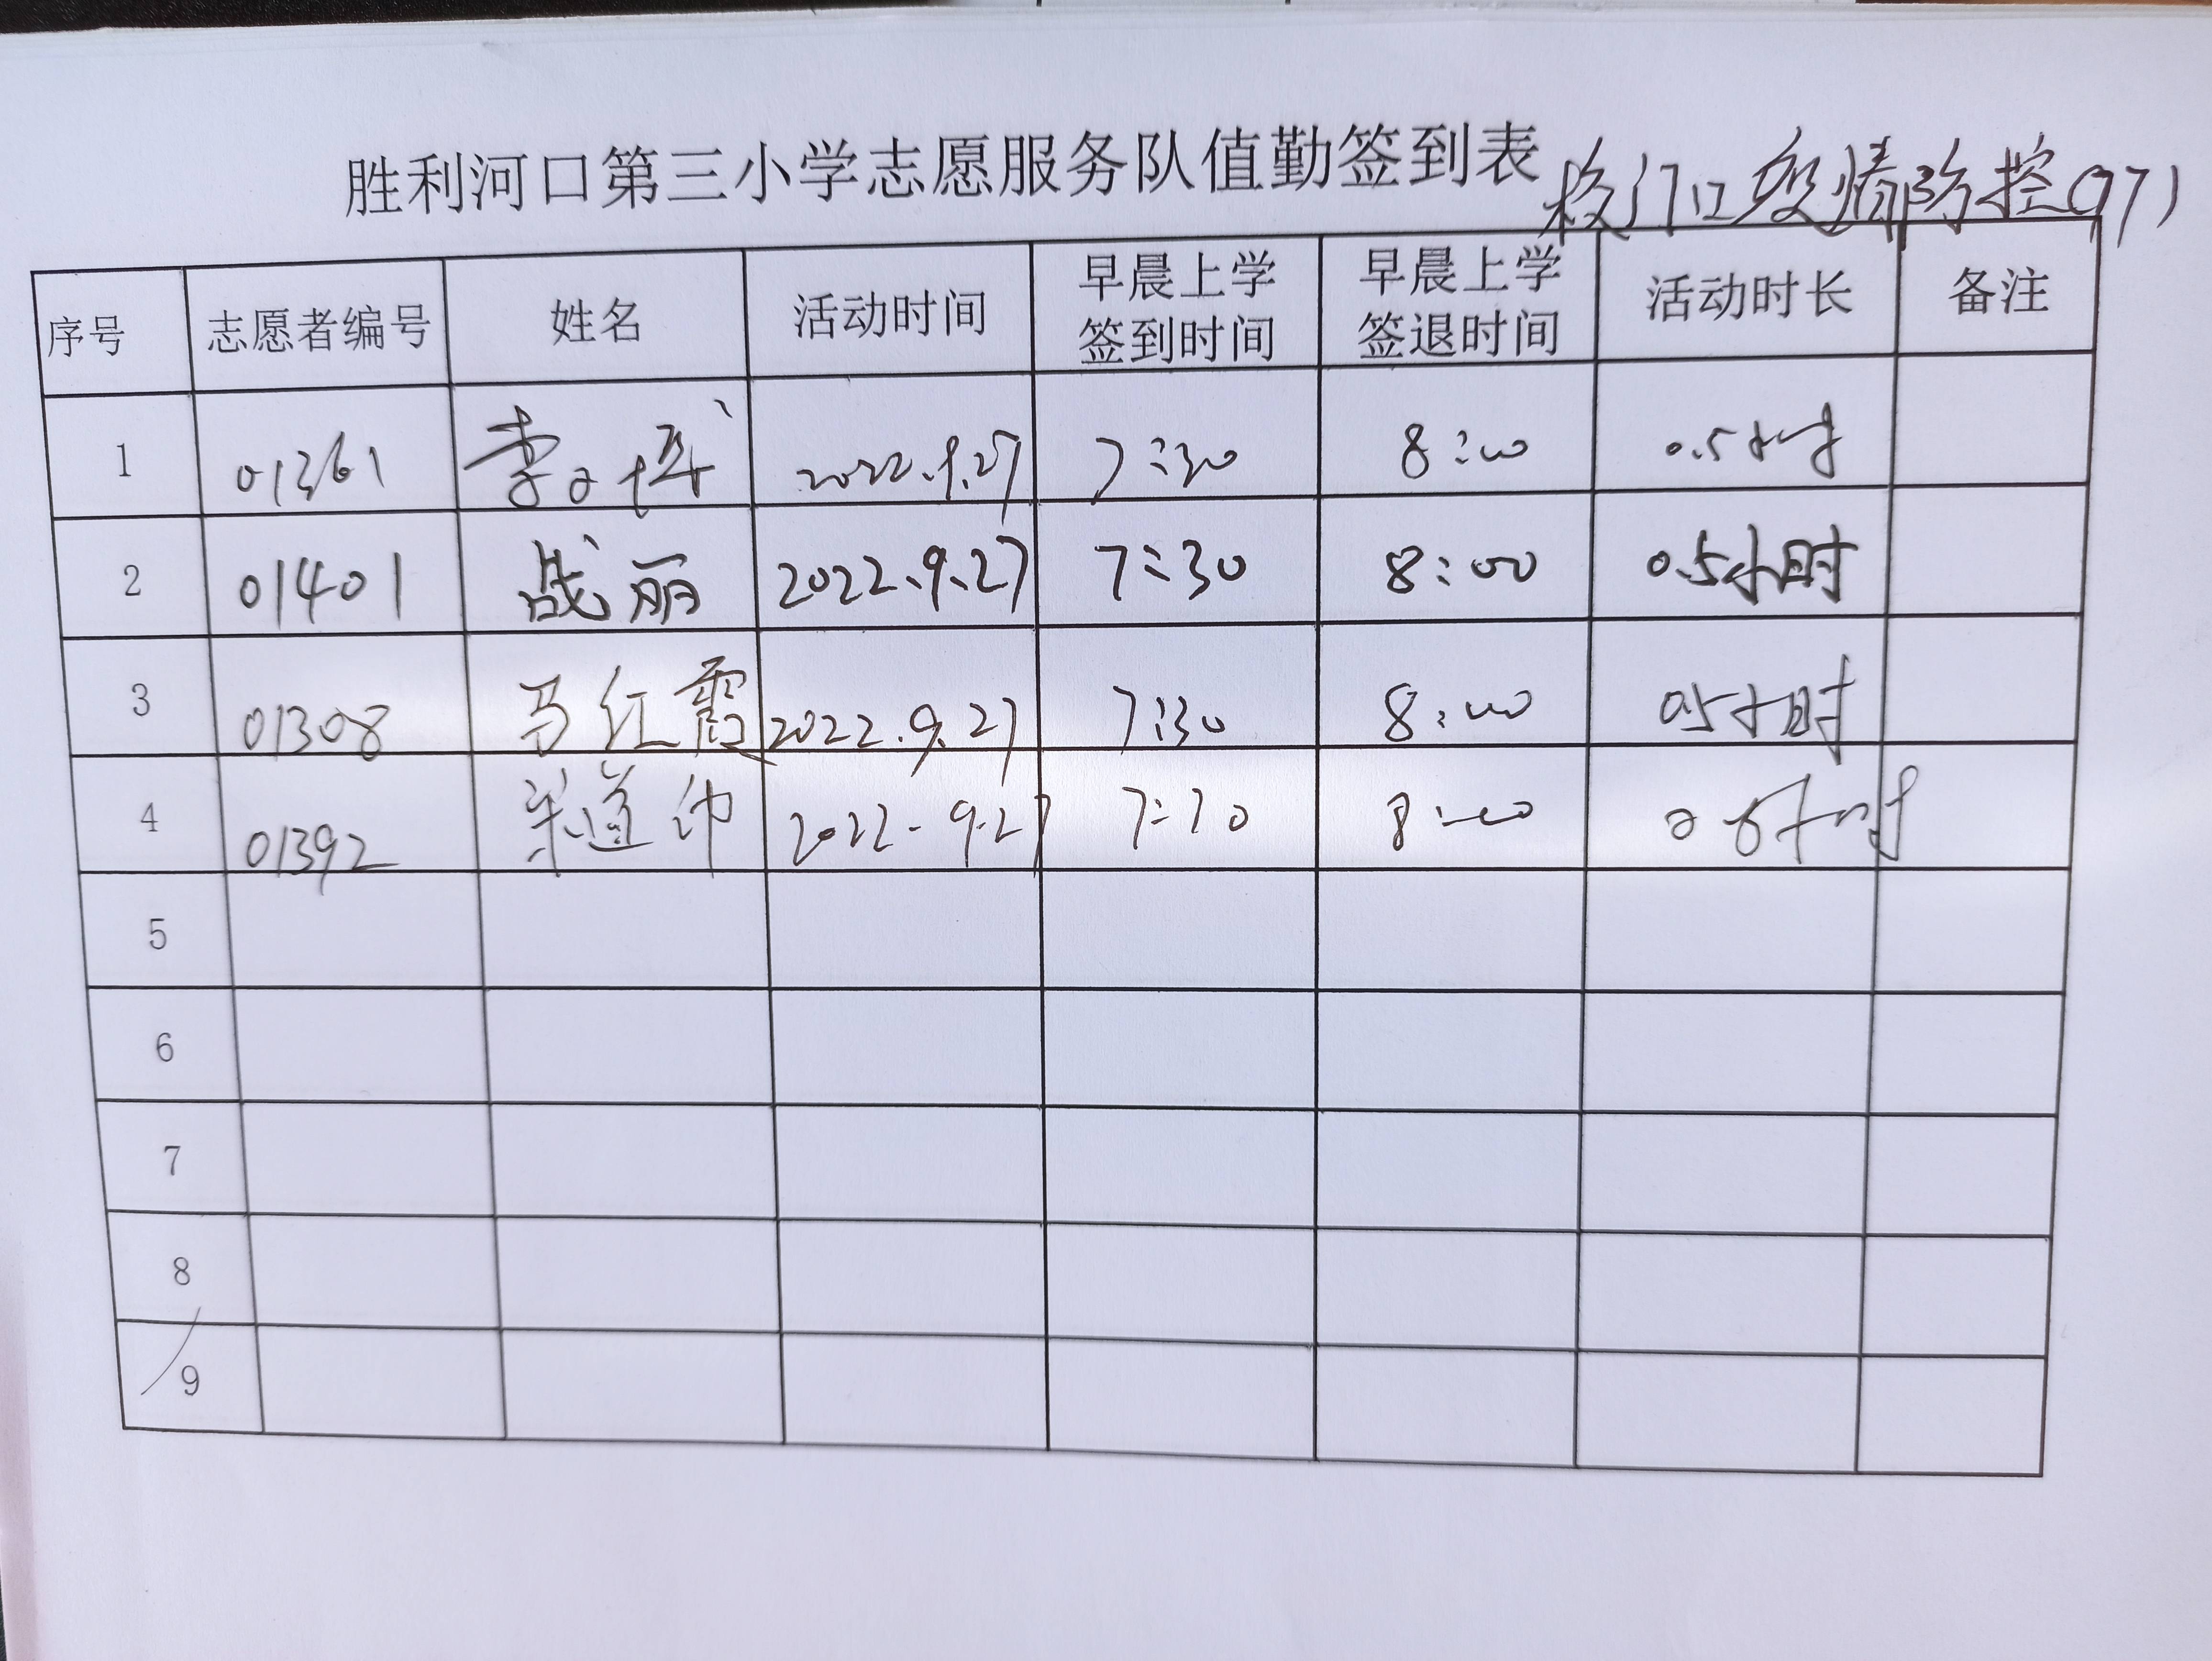 胜利河口第三小学志愿服务队值勤签到表 校门口疫情防控(97)
序号 志愿者编号 姓名 活动时间 早晨上学签到时间 早晨上学签退时间 活动时长 备注
1 01361 李 2022.9.27 7:30 8:00 0.5小时
2 01401 战丽 2022.9.27 7:30 8:00 0.5小时
3 01308 马红霞 2022.9.27 7:30 8:00 0.5小时
4 01392 道 2022-9.27 7:30 8:00 0.5小时
5
6
7
8
9